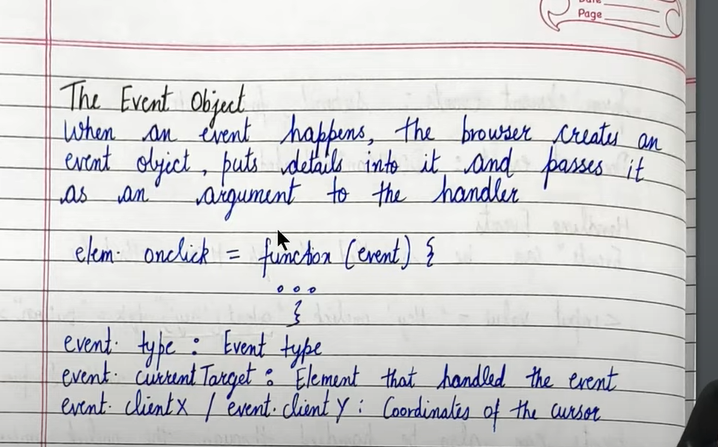 Date
Page
The Event Object
When an event happens, the browser creates an
event object, puts details into it and passes it
as an argument to the handler
elem. onclick = function (event) {
...
}
event. type : Event type
event. currentTarget : Element that handled the event
event. clientX / event. clientY : Coordinates of the cursor